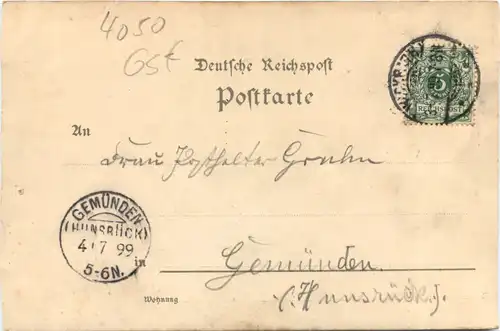 4050
Gst
Deutsche Reichspost
Postkarte
5
REICHSPOST
An
Frau Posthalter Gruhn
GEMÜNDEN
(HUNSRÜCK)
4 7 99
5-6N.
in
Gemünden.
(Hunsrück).
Wohnung